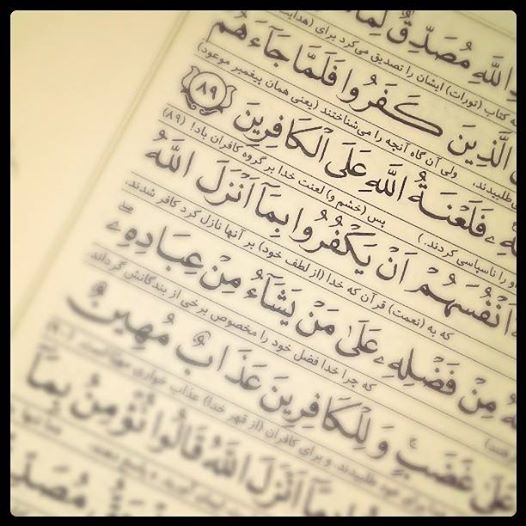 اللّٰهِ مُصَدِّقٌ لِمَا
کتاب (تورات) ایشان را تصدیق می‌کرد برای (هدایت
الَّذِينَ كَفَرُوا فَلَمَّا جَآءَهُمْ
طلبیدند، ولی آن گاه آنچه را می‌شناختند (یعنی همان پیغمبر موعود)
فَلَعْنَةُ اللّٰهِ عَلَى الْكَافِرِينَ ٨٩
را ناسپاسی کردند.) پس (خشم و) لعنت خدا بر گروه کافران باد! (۸۹)
اَنْفُسَهُمْ اَنْ يَكْفُرُوا بِمَآ اَنْزَلَ اللّٰهُ
که به (نعمت) قرآن که خدا (از لطف خود) بر آنها نازل کرد کافر شدند،
مِنْ فَضْلِهِ عَلَىٰ مَنْ يَشَآءُ مِنْ عِبَادِهِ
که چرا خدا فضل خود را مخصوص برخی از بندگانش گرداند
عَلَىٰ غَضَبٍ وَ لِلْكَافِرِينَ عَذَابٌ مُهِينٌ
طلبیدند و برای کافران (از قهر خدا) عذاب خواری
بِمَآ اَنْزَلَ اللّٰهُ قَالُوا نُؤْمِنُ بِمَآ